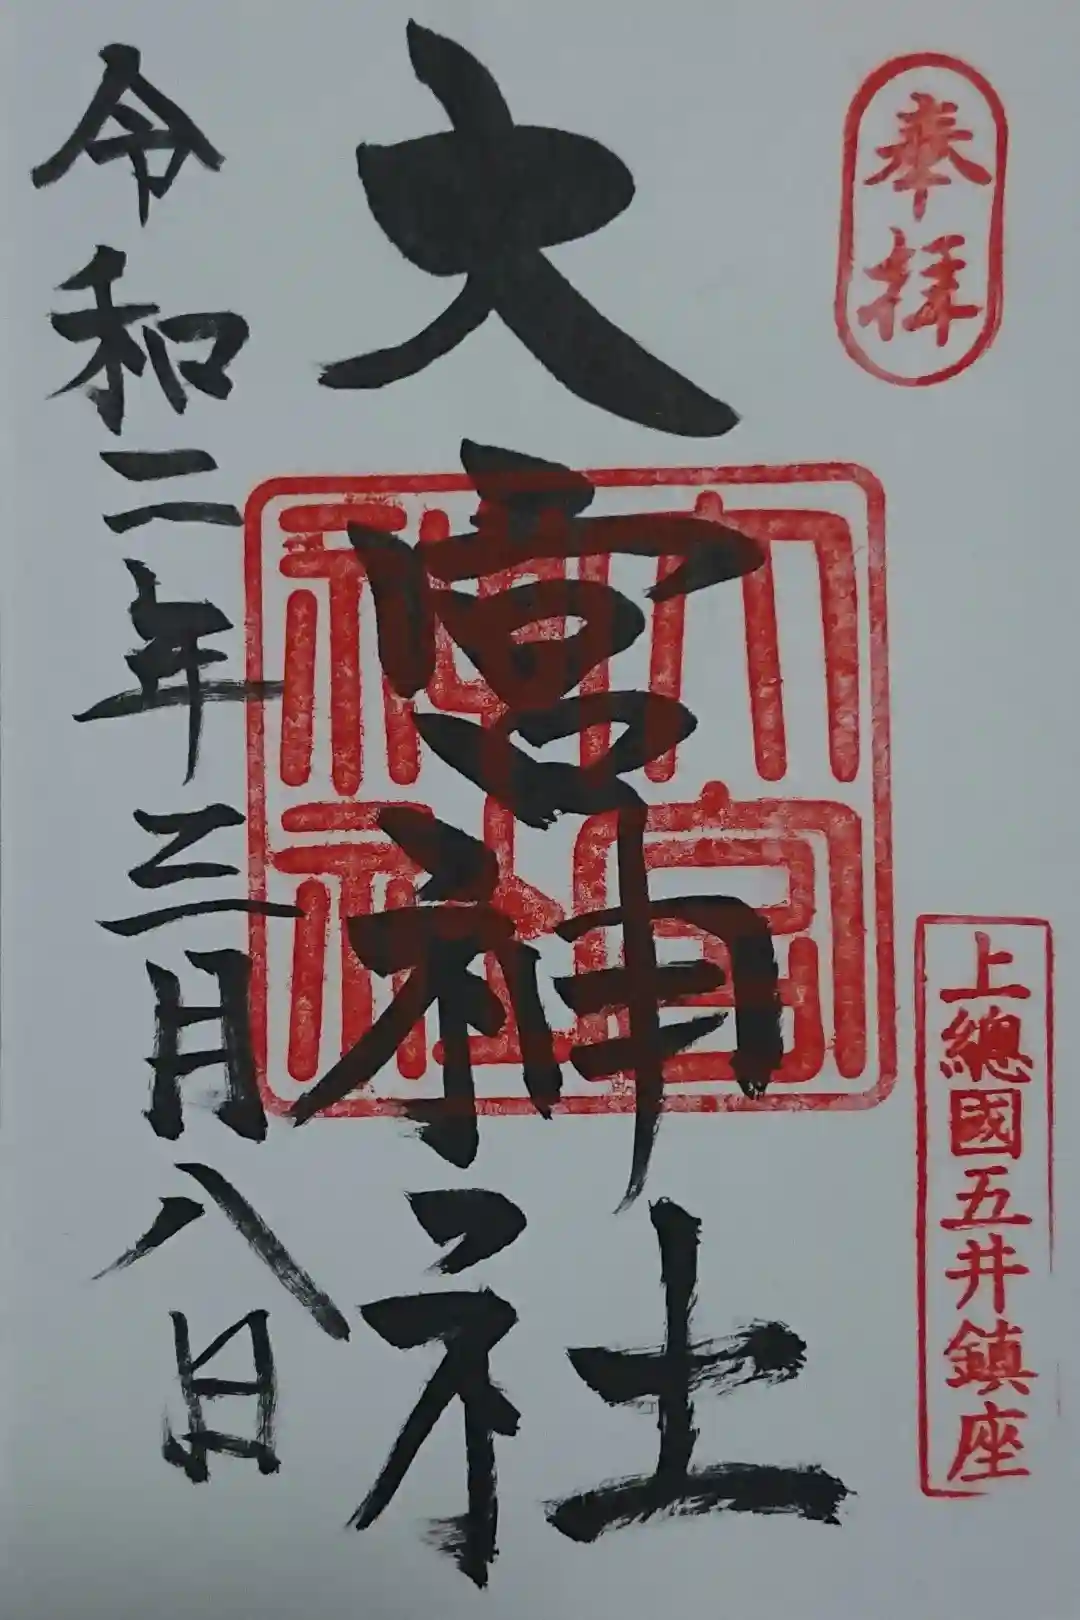 奉拝
上總國五井鎮座
大宮神社
大宮
神社
令和二年三月八日